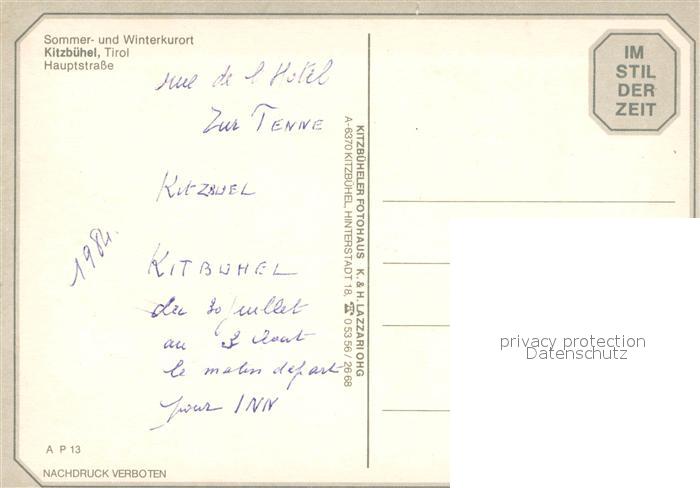 Sommer- und Winterkurort
Kitzbühel, Tirol
Hauptstraße
IM
STIL
DER
ZEIT
rue de l Hotel
Zur TENNE
KITZBUEL
1984.
KITBUHEL
du 30 juillet
au 2 Aout
le matin départ
pour INN
KITZBÜHELER FOTOHAUS K. & H. LAZZARI OHG
A-6370 KITZBÜHEL, HINTERSTADT 18, ☎ 0 53 56 / 26 68
privacy protection
Datenschutz
A P 13
NACHDRUCK VERBOTEN